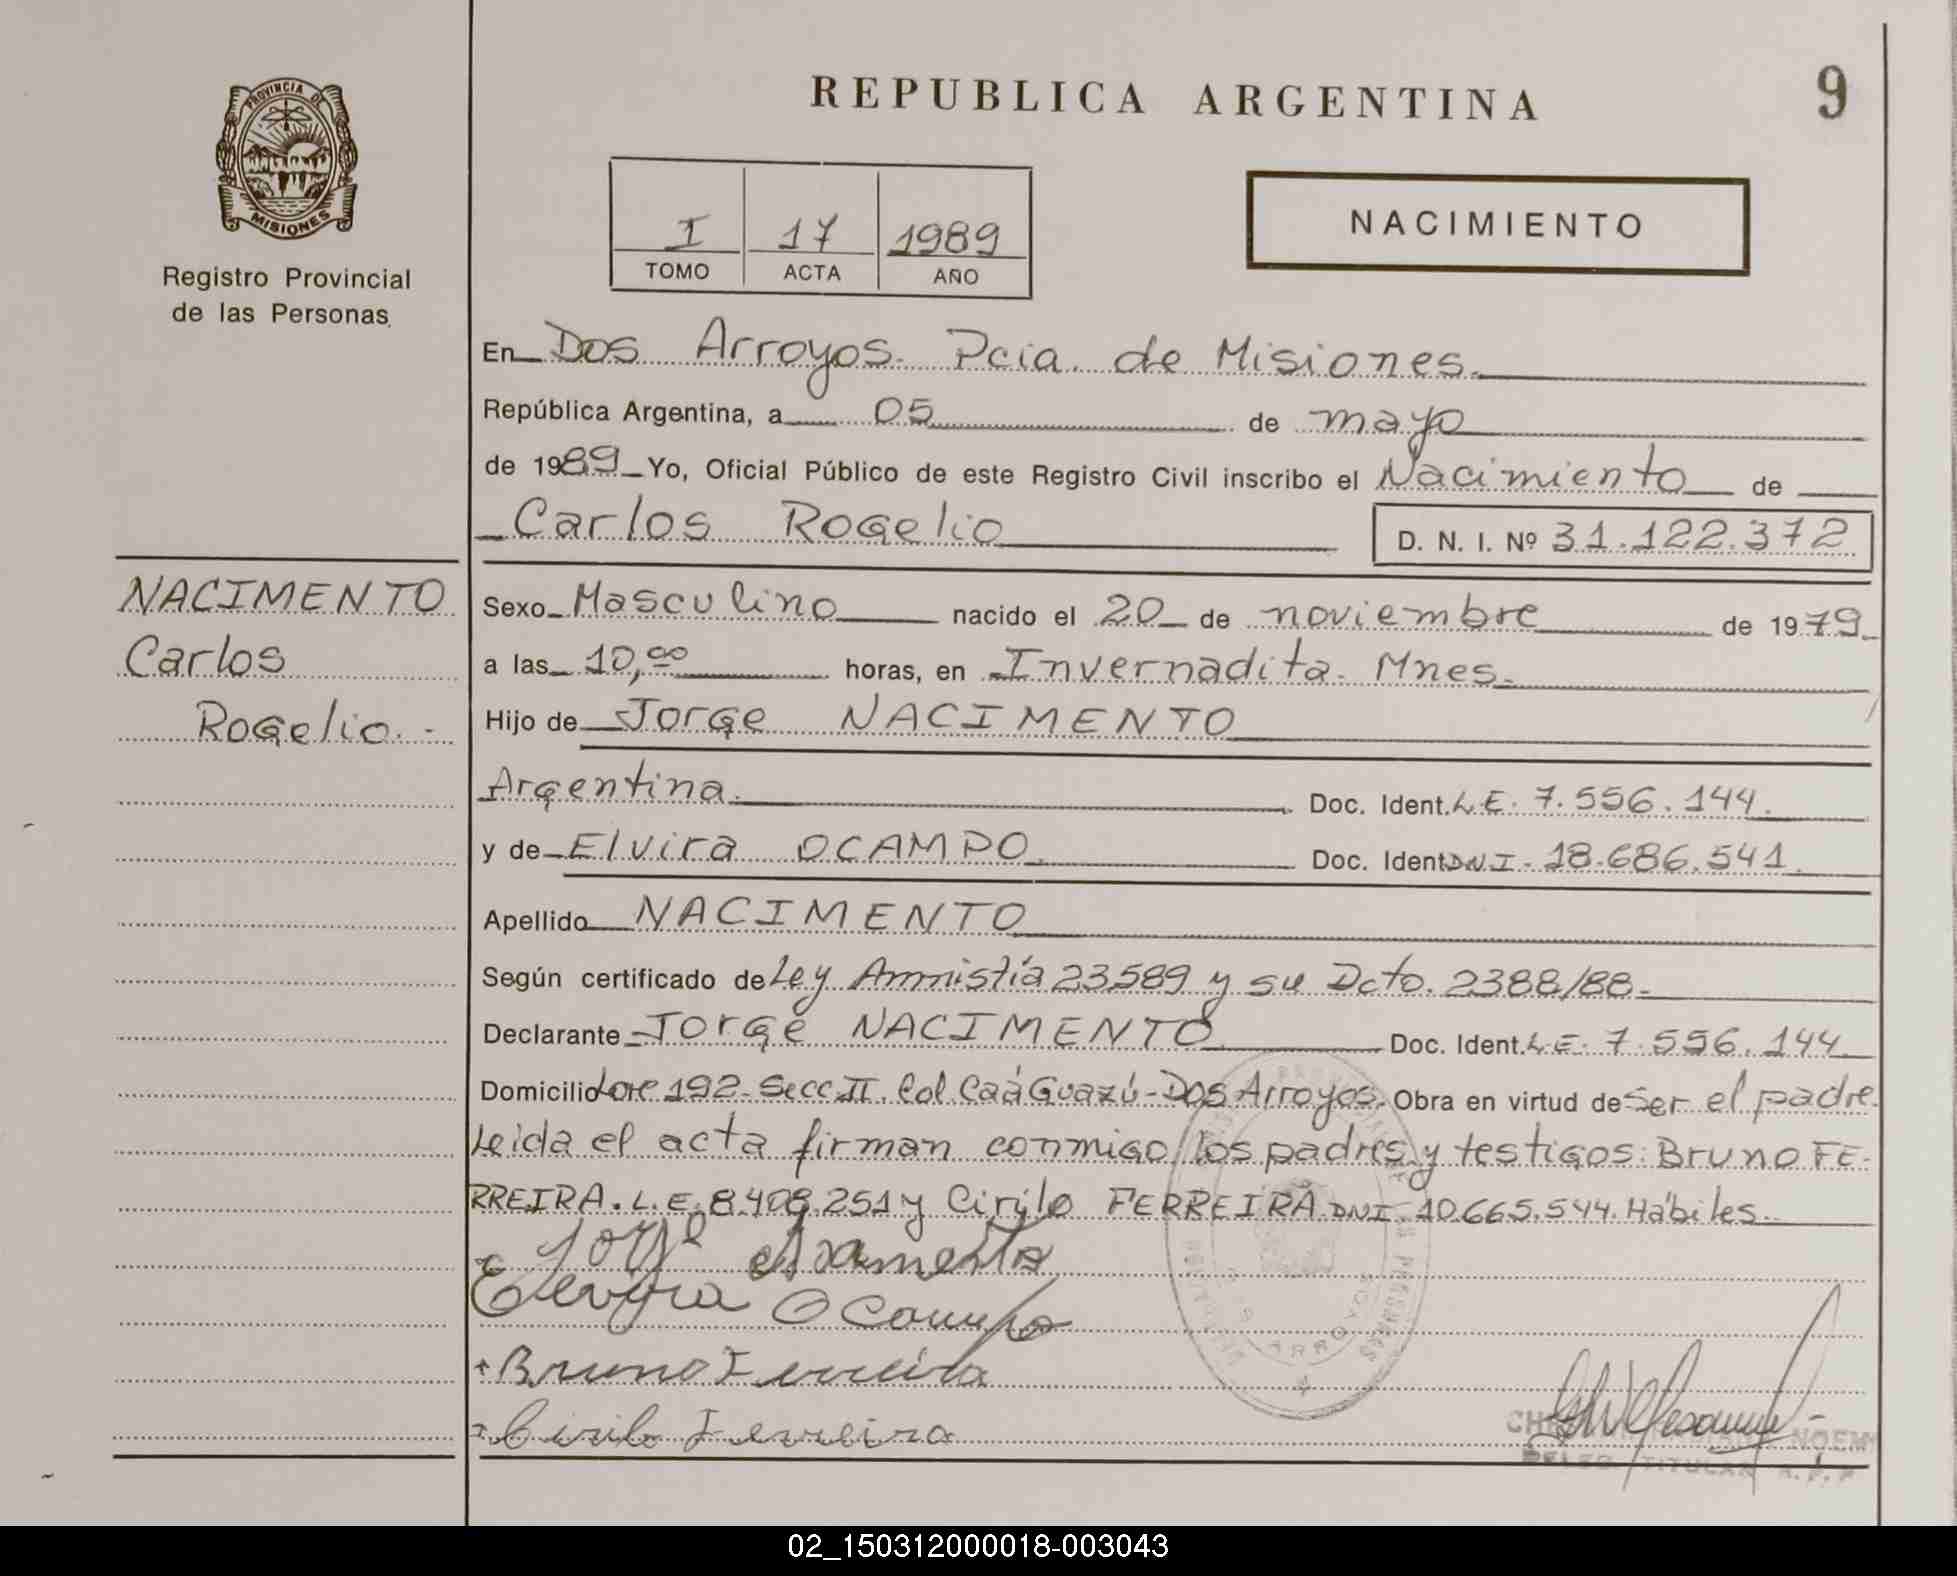 REPUBLICA ARGENTINA
9
PROVINCIA DE
MISIONES
Registro Provincial
de las Personas
I 17 1989
TOMO ACTA AÑO
NACIMIENTO
En Dos Arroyos. Pcia. de Misiones.
República Argentina, a 05 de mayo
de 1989 Yo, Oficial Público de este Registro Civil inscribo el Nacimiento de
Carlos Rogelio D. N. I. Nº 31.122.372
NACIMENTO
Carlos
Rogelio.-
Sexo Masculino nacido el 20 de noviembre de 1979
a las 10,00 horas, en Invernadita. Mnes.
Hijo de Jorge NACIMENTO
Argentina. Doc. Ident. L.E. 7.556.144.
y de Elvira OCAMPO Doc. Ident. DNI. 18.686.541.
Apellido NACIMENTO
Según certificado de Ley Amnistía 23589 y su Dcto. 2388/88.-
Declarante Jorge NACIMENTO Doc. Ident. L.E. 7.556.144
Domicilio Lote 192- Secc II. Col Caá Guazú-Dos Arroyos. Obra en virtud de Ser el padre.
Leida el acta firman conmigo los padres y testigos: Bruno FE-
RREIRA. L.E. 8.408.251 y Cirilo FERREIRA DNI. 10.665.544. Hábiles.
Jorge
Elvira Ocampo
Bruno Ferreira
Cirilo Ferreira
ARROYOS
NOEMI
TITULAR R.P.P
02_150312000018-003043